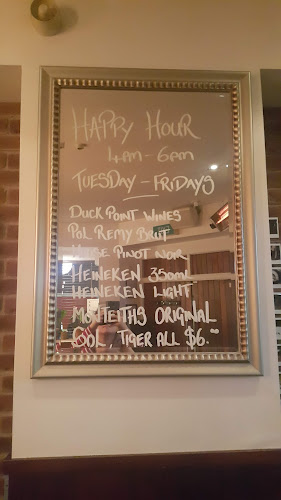 HAPPY HOUR
4PM - 6PM
TUESDAY - FRIDAYS
DUCK POINT WINES
POL REMY BRUT
HOUSE PINOT NOIR
HEINEKEN 350ML
HEINEKEN LIGHT
MONTEITHS ORIGINAL
SOL TIGER ALL $6.00